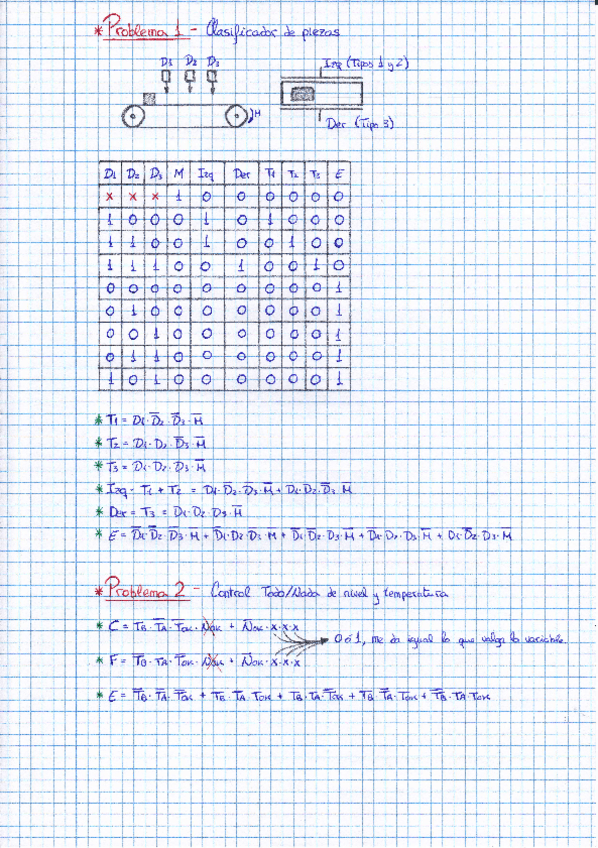 * Problema 1 - Clasificador de piezas
D1 D2 D3
Izq (Tipos 1 y 2)
M
Der (Tipo 3)
D1 D2 D3 M Izq Der T1 T2 T3 E
x x x 1 0 0 0 0 0 0
1 0 0 0 1 0 1 0 0 0
1 1 0 0 1 0 0 1 0 0
1 1 1 0 0 1 0 0 1 0
0 0 0 0 0 0 0 0 0 1
0 1 0 0 0 0 0 0 0 1
0 0 1 0 0 0 0 0 0 1
0 1 1 0 0 0 0 0 0 1
1 0 1 0 0 0 0 0 0 1
* T1 = D1·D̅2·D̅3·M̅
* T2 = D1·D2·D̅3·M̅
* T3 = D1·D2·D3·M̅
* Izq = T1 + T2 = D1·D̅2·D̅3·M̅ + D1·D2·D̅3·M̅
* Der = T3 = D1·D2·D3·M̅
* E = D̅1·D̅2·D̅3·M̅ + D̅1·D2·D̅3·M̅ + D̅1·D̅2·D3·M̅ + D̅1·D2·D3·M̅ + D1·D̅2·D3·M̅
* Problema 2 - Control Todo/Nada de nivel y temperatura
* C = TB·T̅A·T̅OK· + N̅OK·x·x·x
0 ó 1, me da igual lo que valga la variable.
* F = T̅B·TA·T̅OK· + N̅OK·x·x·x
* E = T̅B·T̅A·T̅OK + TB·T̅A·TOK + TB·TA·T̅OK + TB·TA·TOK + T̅B·TA·TOK